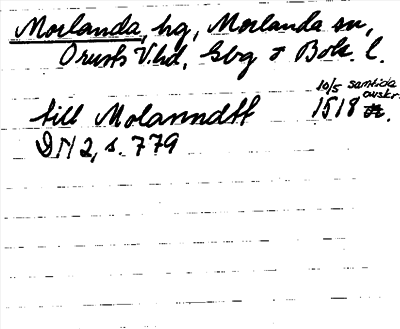 Morlanda, hg, Morlanda sn,
Orusts V. hd, Gbg o Boh. l.
10/5 samtida
avskr.
till Molanndtt 1518
DN 2, s. 779